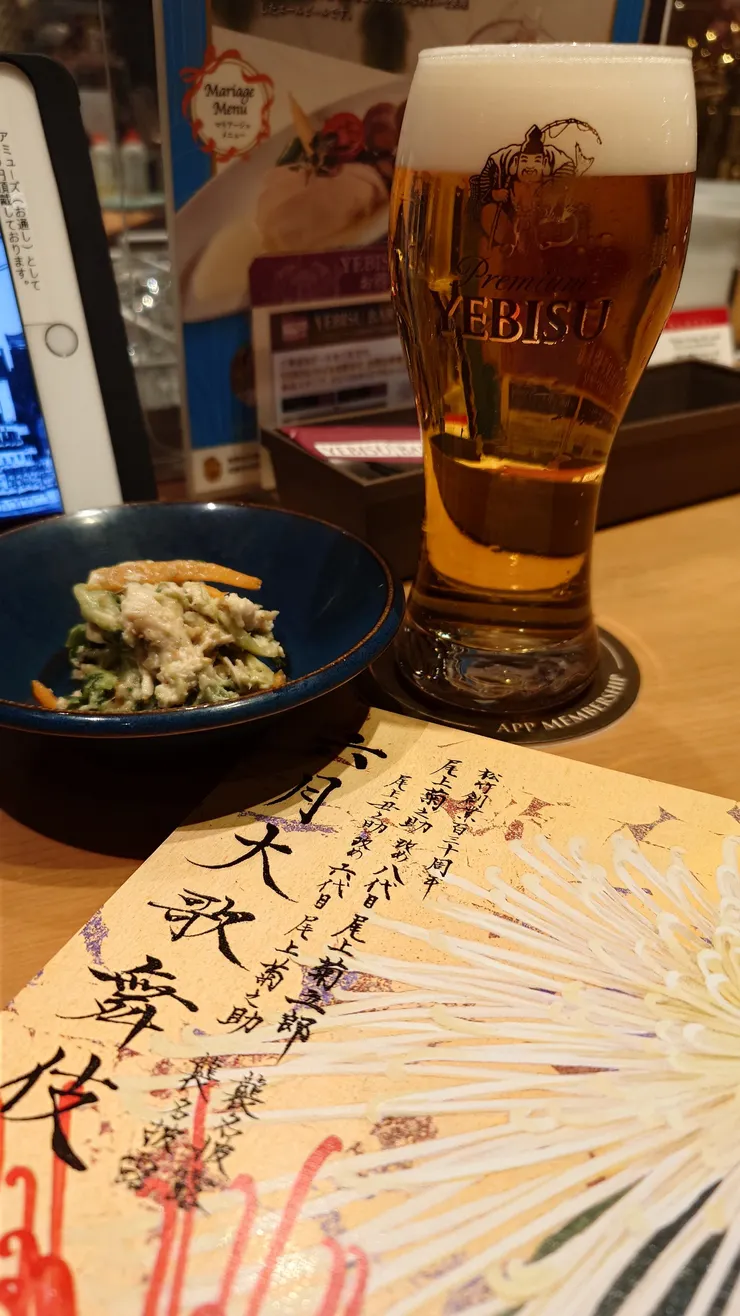 したエールビールです。
Mariage
Menu
マリアージュ
メニュー
アミューズ(お通し)として
頂戴しております。
Premium
YEBISU
YEBISU BAR
APP MEMBERSHIP
松竹創業百三十周年
尾上菊之助 改め 八代目 尾上菊五郎
尾上丑之助 改め 六代目 尾上菊之助
襲名披露
襲名披露
六月大歌舞伎